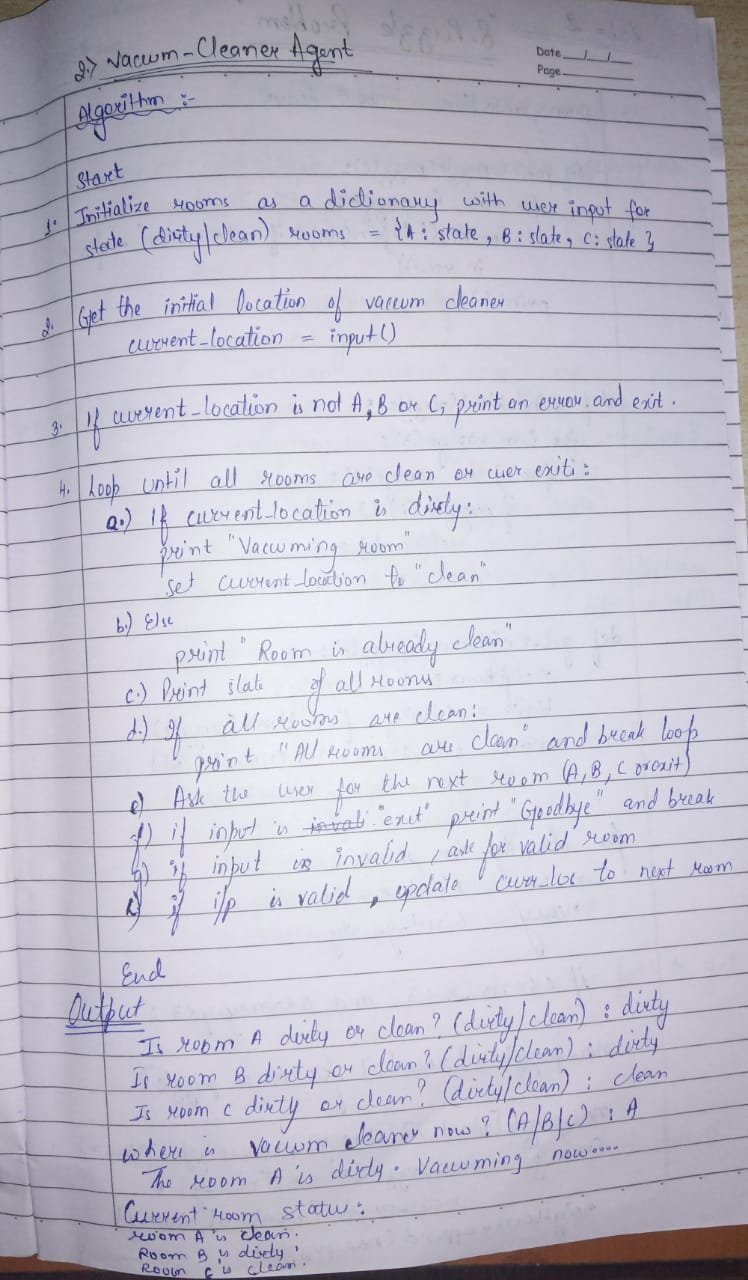 Date
Page
2.) Vacuum-Cleaner Agent
Algorithm :-
Start
1. Initialize rooms as a dictionary with user input for
state (dirty/clean) rooms = {A: state, B: state, C: state }
2. Get the initial location of vaccum cleaner
current_location = input()
3. If current_location is not A, B or C, print an error. and exit.
4. Loop until all rooms are clean or user exits:
a.) If current_location is dirty:
print "Vacuuming room"
set current_location to "clean"
b.) Else
print "Room is already clean"
c.) Print state of all rooms
d.) If all rooms are clean:
print "All rooms are clean" and break loop
e) Ask the user for the next room (A, B, C or exit)
f) if input is "exit" print "Goodbye" and break
g) if input is invalid, ask for valid room
if i/p is valid, update curr_loc to next room
End
Output
Is room A dirty or clean? (dirty/clean) : dirty
Is room B dirty or clean? (dirty/clean) : dirty
Is room C dirty or clean? (dirty/clean) : clean
where is vaccum cleaner now? (A/B/C) : A
The room A is dirty. Vacuuming now....
Current room status:
room A is clean.
Room B is dirty.
Room C is clean.